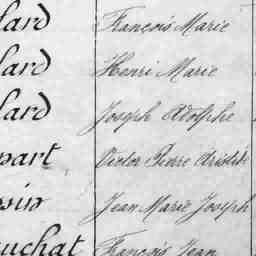 lard François Marie
lard Henri Marie
lard Joseph Adolphe
part Victor Pierre Aristide
Jean Marie Joseph
uchat François Jean